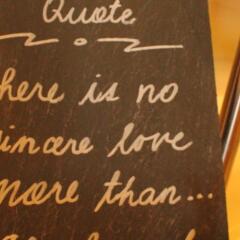 Quote
here is no
incere love
more than...